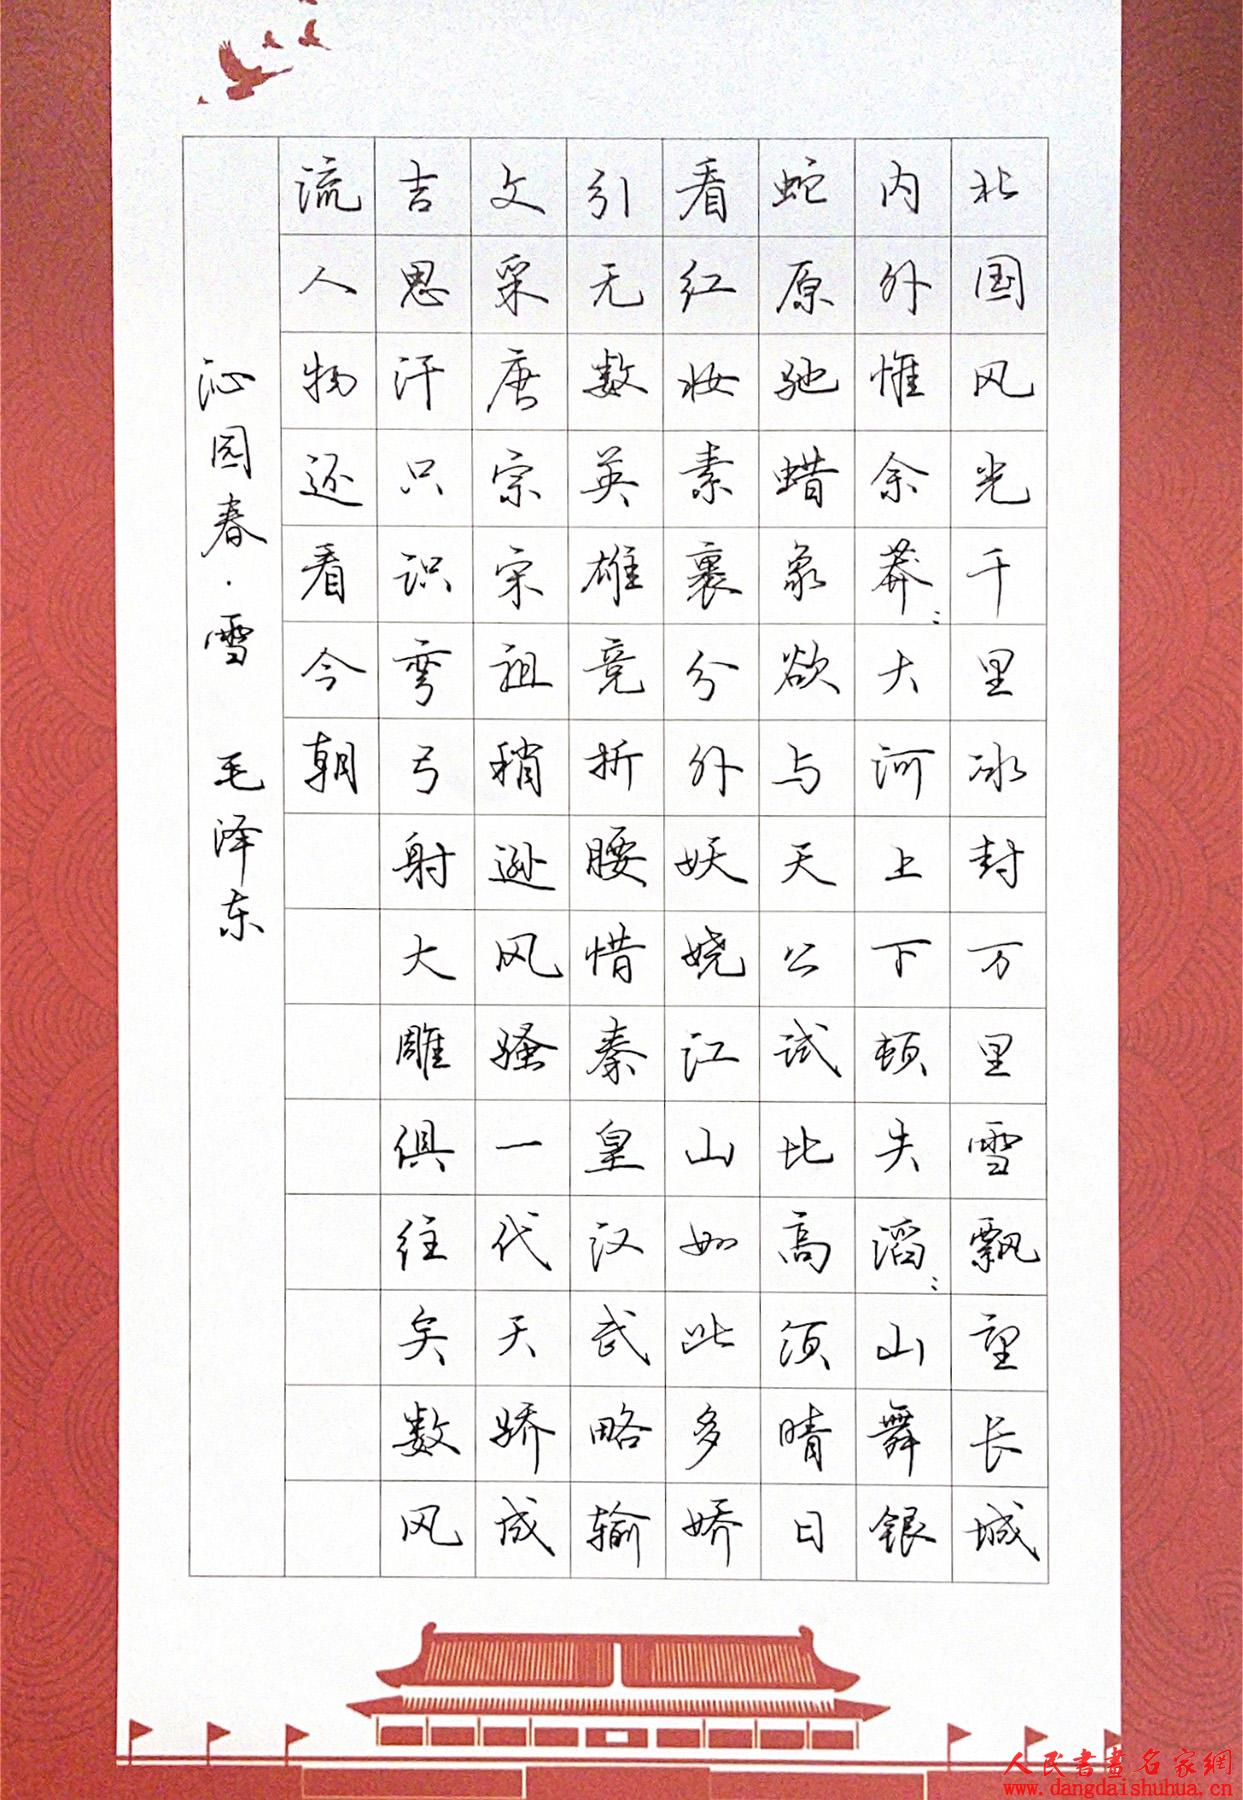 北国风光千里冰封万里雪飘望长城
内外惟余莽：大河上下顿失滔：山舞银
蛇原驰蜡象欲与天公试比高须晴日
看红妆素裹分外妖娆江山如此多娇
引无数英雄竞折腰惜秦皇汉武略输
文采唐宗宋祖稍逊风骚一代天骄成
吉思汗只识弯弓射大雕俱往矣数风
流人物还看今朝
沁园春·雪 毛泽东
人民書畫名家網
www.dangdaishuhua.cn